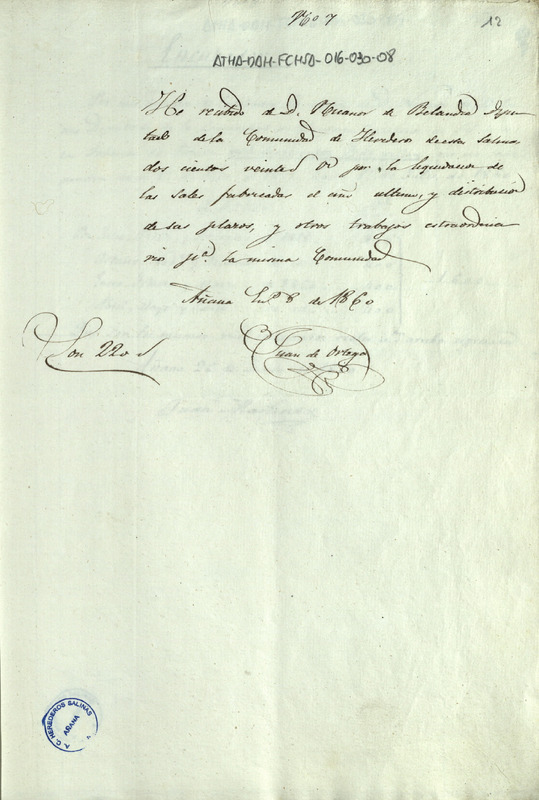 Nº 7
12
ATHA-DAH-FCHSA-016-030-08
He recibido de D. Nicanor de Belandia Dipu
tado de la Comunidad de Herederos de estas Salinas
dos cientos veinte rs por la liquidacion de
las sales fabricadas el año ultimo, y distribucion
de sus plazos, y otros trabajos estraordina
rios pª. la misma Comunidad
Añana Enº 8 de 1860
Son 220 rs
Juan de Ortega
A. C. HEREDEROS SALINAS
AÑANA